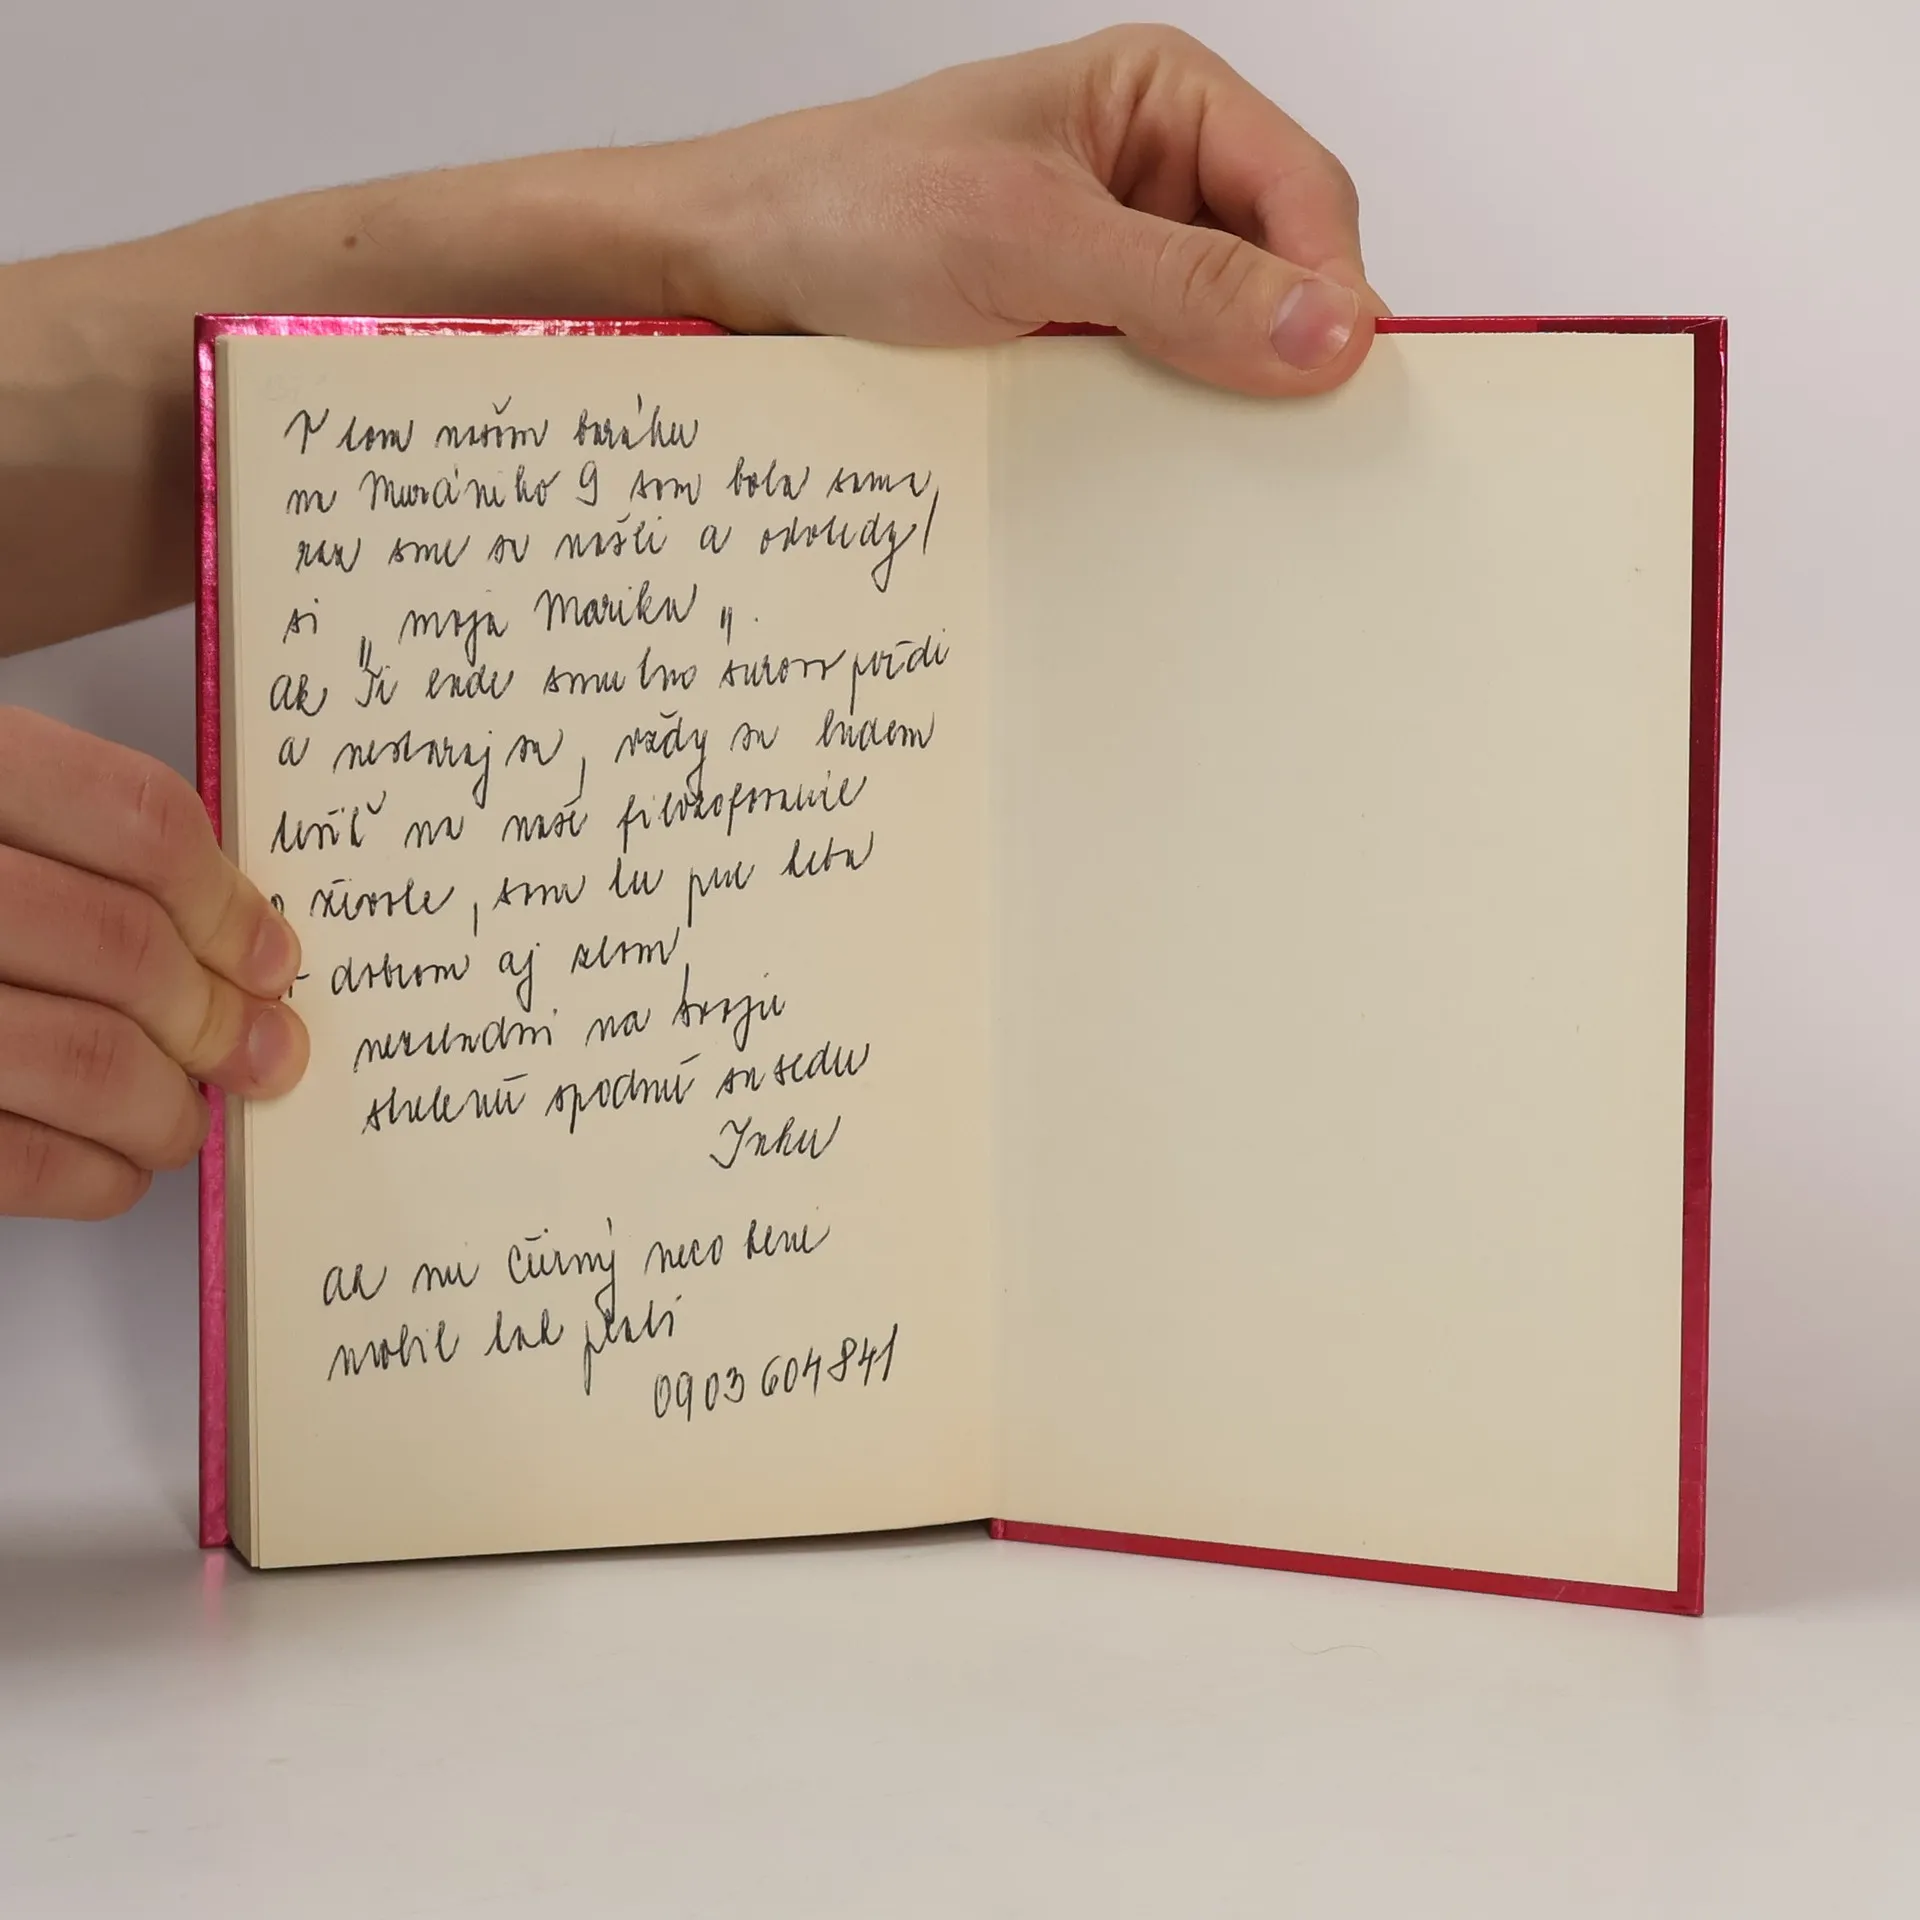 V tom našom baráku
na Murániho 9 som bola sama,
raz sme sa našli a odvtedy
si „moja Marika".
Ak Ti bude smutno surovo príďi
a nestaraj sa, vždy sa budem
tešiť na naše filozofovanie
o živote, som tu pre Teba
v dobrom aj zlom,
nezabudni na svoju
strelenú spodnú susedu
Inku
Ak mi čierný neco bere
mobil tak platí
0903 604 841